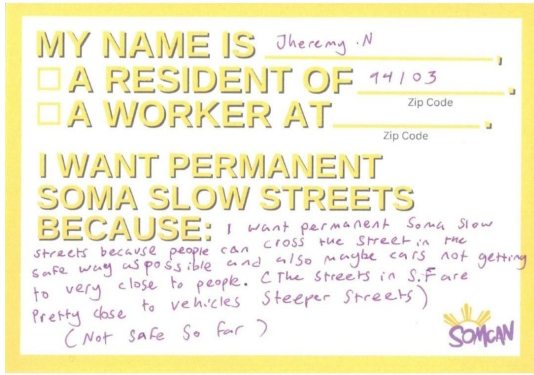 MY NAME IS Jheremy .N,
□ A RESIDENT OF 94103.
Zip Code
□ A WORKER AT .
Zip Code
I WANT PERMANENT
SOMA SLOW STREETS
BECAUSE: I want permanent Soma Slow
streets because people can cross the street in the
safe way as possible and also maybe cars not getting
to very close to people. (The streets in S.F are
Pretty close to vehicles Steeper Streets)
(Not safe so far)
SOMCAN